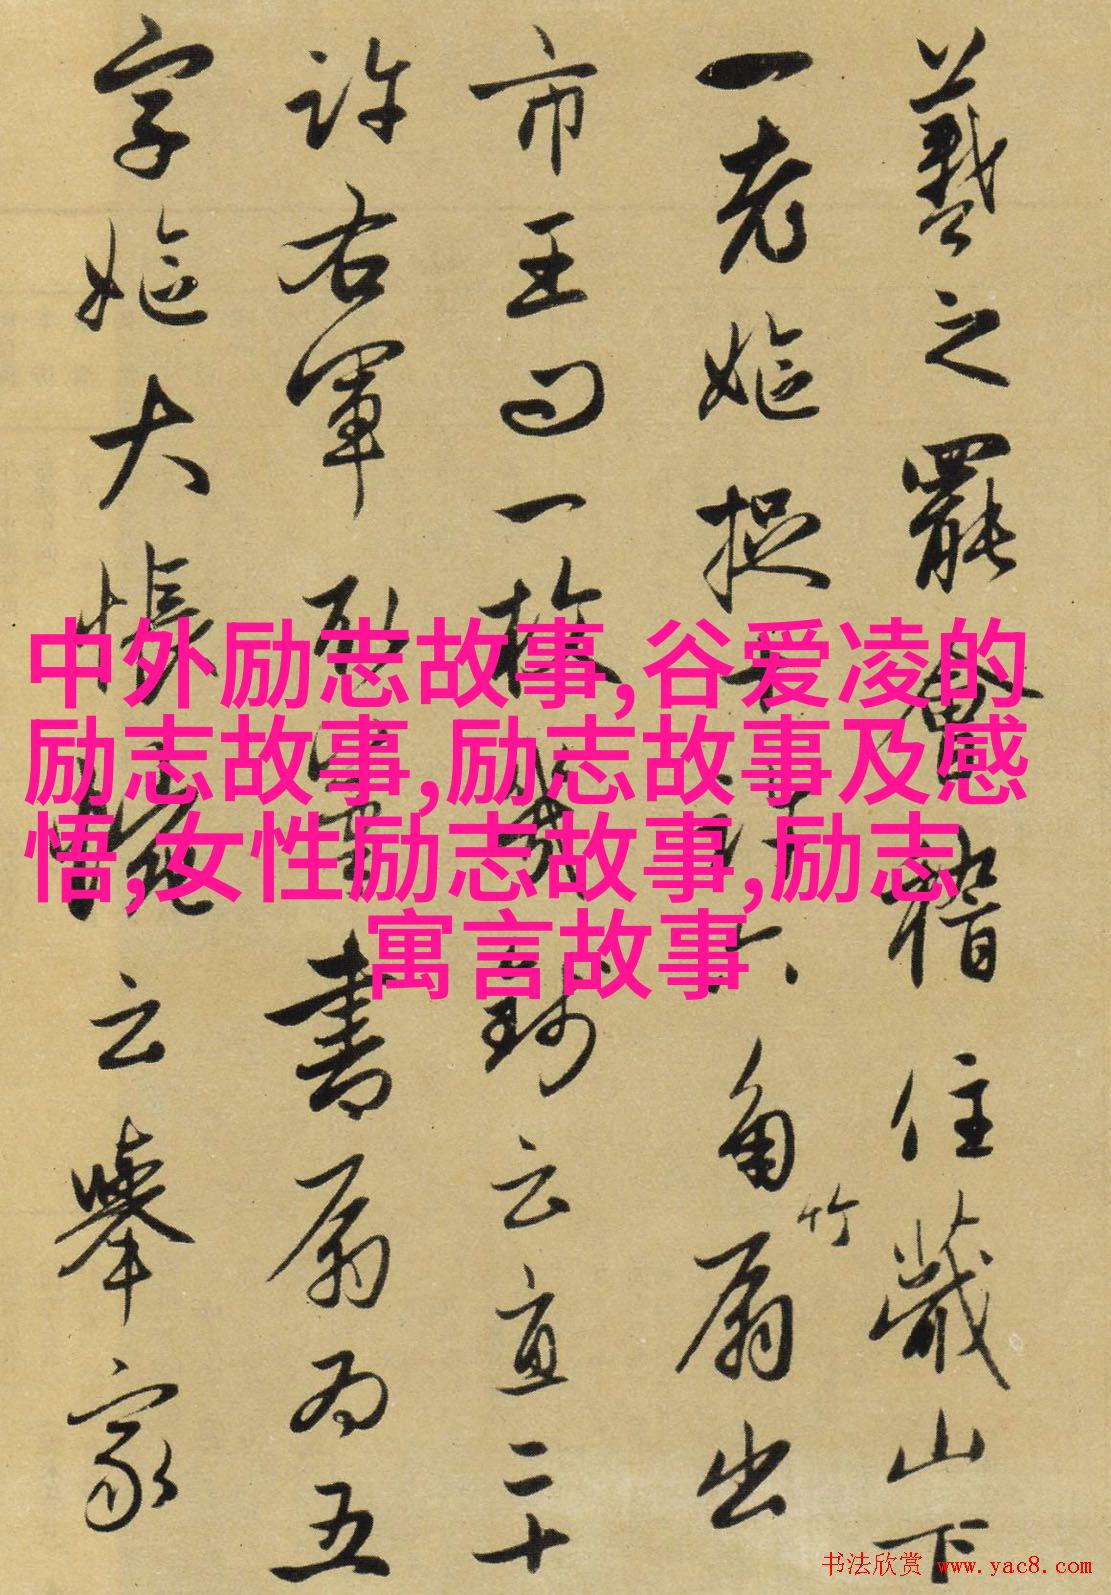 羲之罷會稽住蕺山下
一老嫗捉十許六角竹扇出
市王問一枚幾錢云直二十
許右軍取筆書扇為五
字嫗大悵惋云舉家
中外励志故事,谷爱凌的
励志故事,励志故事及感
悟,女性励志故事,励志
寓言故事
书法欣赏 www.yac8.com